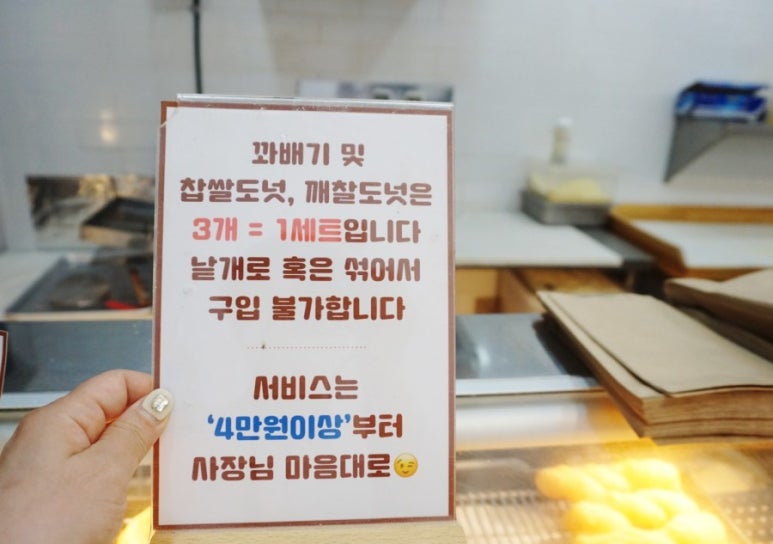 꽈배기 및
찹쌀도넛, 깨찰도넛은
3개 = 1세트입니다
낱개로 혹은 섞어서
구입 불가합니다
서비스는
'4만원이상'부터
사장님 마음대로😉